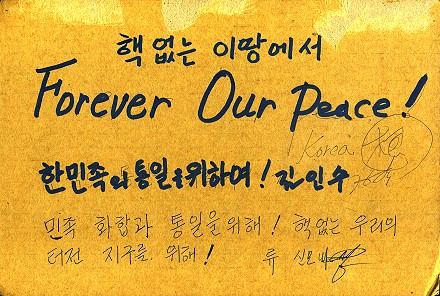 핵 없는 이땅에서
Forever Our Peace!
Korea
한민족의 통일을 위하여! 김인수
민족 화합과 통일을 위해! 핵없는 우리의
터전 지구를 위해! 류